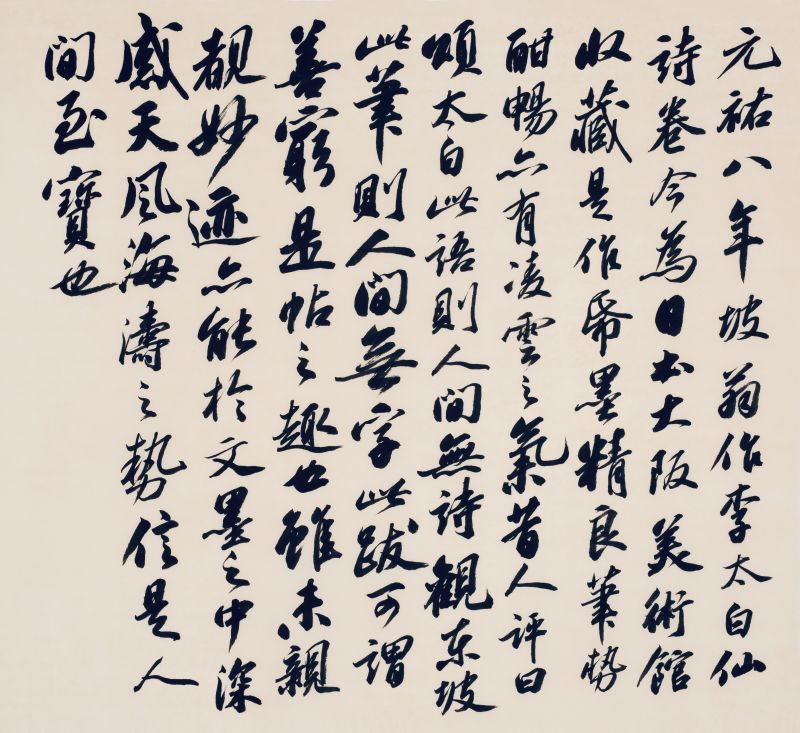 元祐八年坡翁作李太白仙
詩卷今為日本大阪美術館
收藏是作帋墨精良筆勢
酣暢亦有凌雲之氣昔人評曰
頌太白此語則人間無詩觀東坡
此筆則人間無字此跋可謂
善窮是帖之趣也雖未親
覩妙迹亦能於文墨之中深
感天風海濤之勢信是人
間至寶也